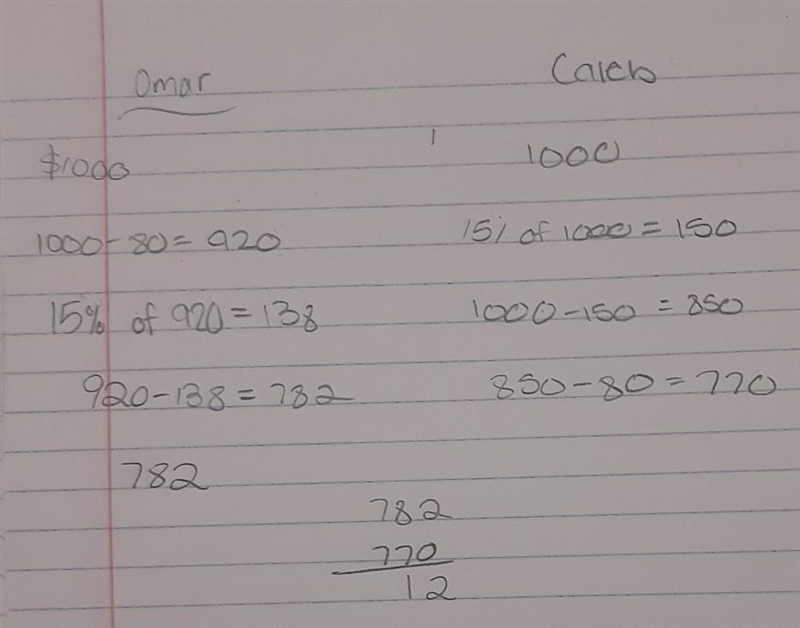 Omar Caleb
$1000 1000
1000-80=920 15% of 1000=150
15% of 920=138 1000-150=850
920-138=782 850-80=770
782
782
770
12